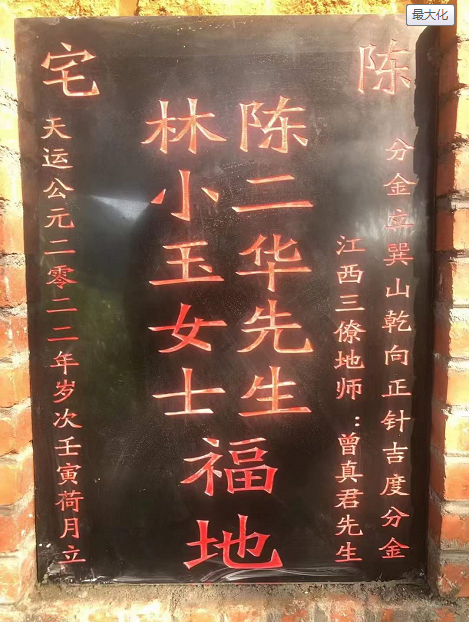 最大化
陈
宅
分金立巽山乾向正针吉度分金
江西三僚地师：曾真君先生
陈二华先生
林小玉女士
福地
天运公元二零二二年岁次壬寅荷月立